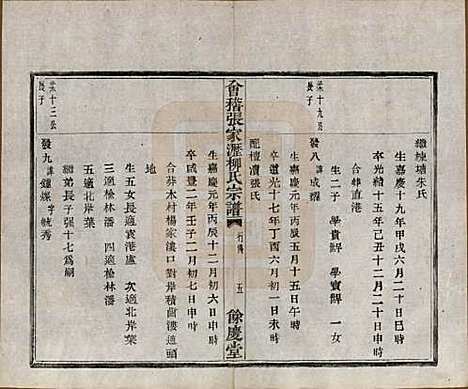 繼練塘朱氏
生嘉慶十九年甲戌六月二十日巳時
卒光緒十五年己丑十二月二十日申時
合葬直港
榮十九長長子
發八 諱成耀
生二子 學貴 學寶 一女
生嘉慶元年丙辰五月十五日午時
卒道光十七年丁酉六月初一日未時
配檀瀆張氏
會稽張家瀝柳氏宗譜
行傳 五
餘慶堂
生嘉慶元年丙辰十二月初六日申時
卒咸豐二年壬子二月初七日申時
合葬木村楊家漊口對岸積菌漊道頭
地
生五女長適袁港盧 次適北岸葉
三適榆林潘 四適榆林潘
五適北岸葉
繼弟長子張十七爲嗣
榮十三長長子
發九 諱鍾燦 字毓秀